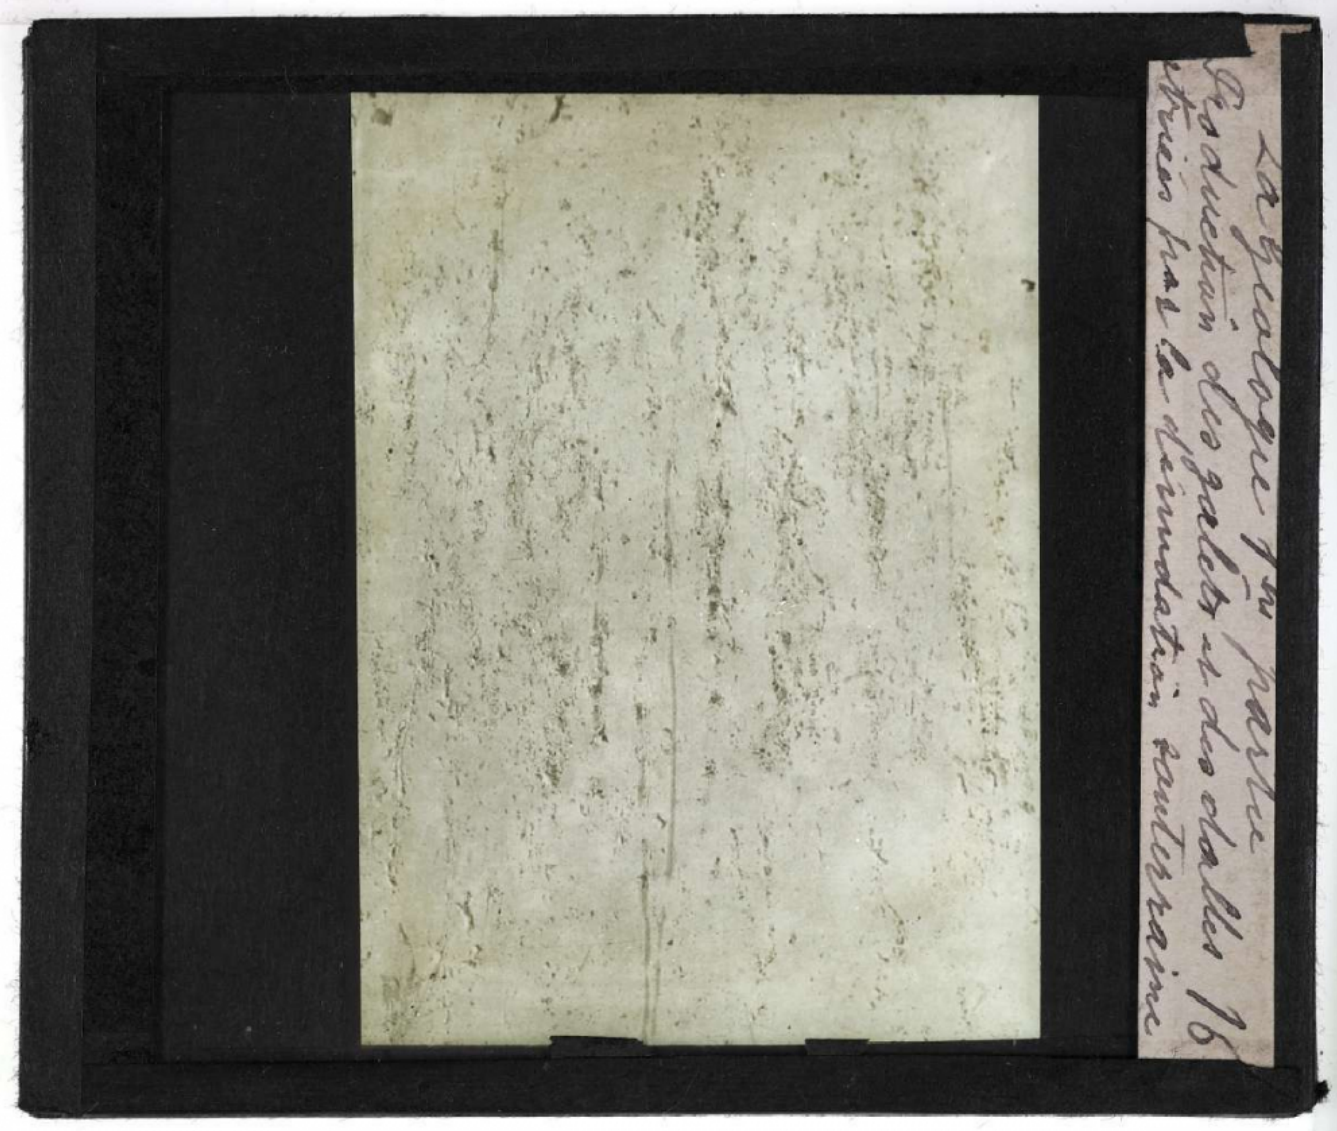 La géologie 1re partie
Production des galets et des dalles 16
striées par la dénudation souterraine